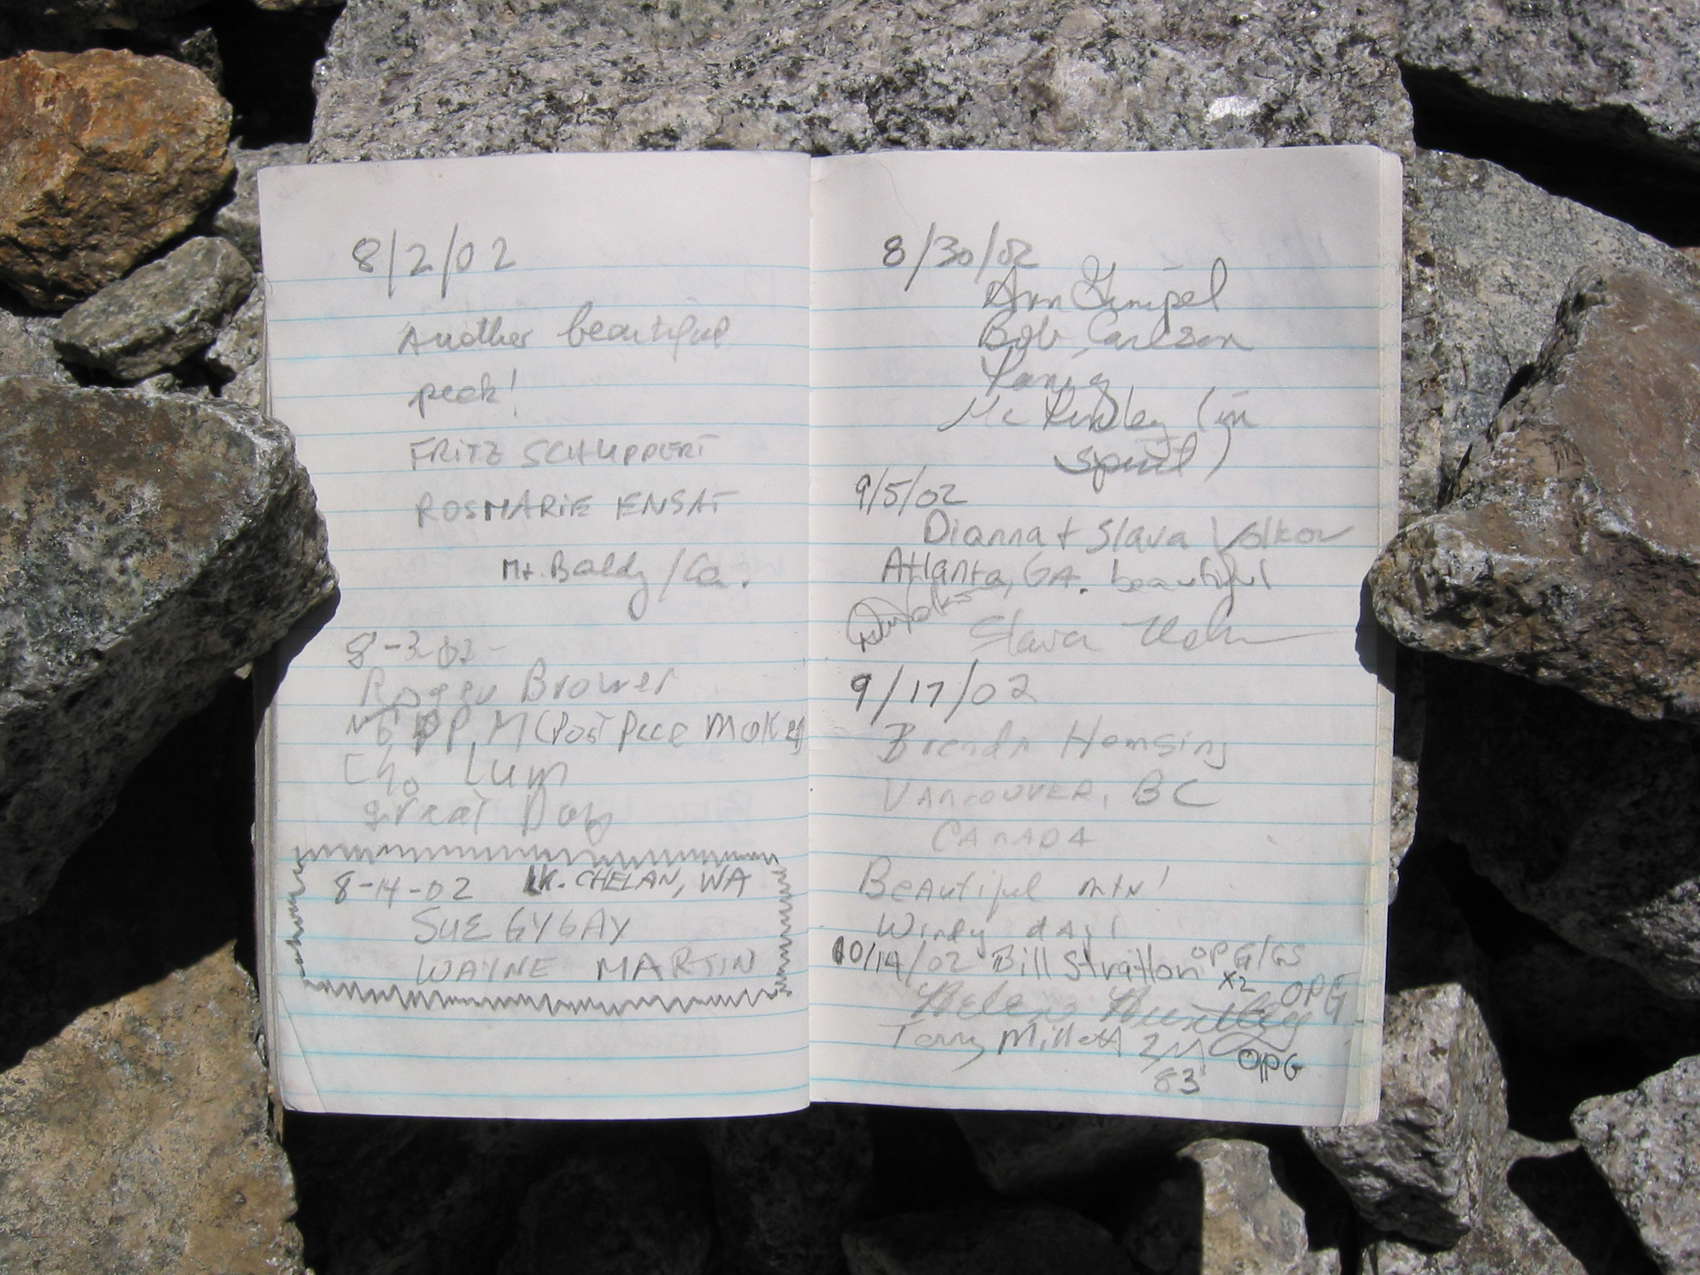 8/2/02
Another beautiful
peak!
FRITZ SCHUPPERT
ROSMARIE ENSAT
Mt. Baldy/Ca.
8-3-02-
Roger Brower
Great Day
8-14-02 LK. CHELAN, WA
SUE GYGAY
WAYNE MARTIN
8/30/02
Ann Gimpel
Bob Carlson
McKinley (in
spirit)
9/5/02
Dianna + Slava Volkov
Atlanta, GA. beautiful
Slava
9/17/02
Brenda Homsing
VANCOUVER, BC
CANADA
Beautiful mtn!
Windy day!
10/14/02 Bill Stratton OPG/GS
x2 OPG
Huntley
Terry Millett
OPG
83